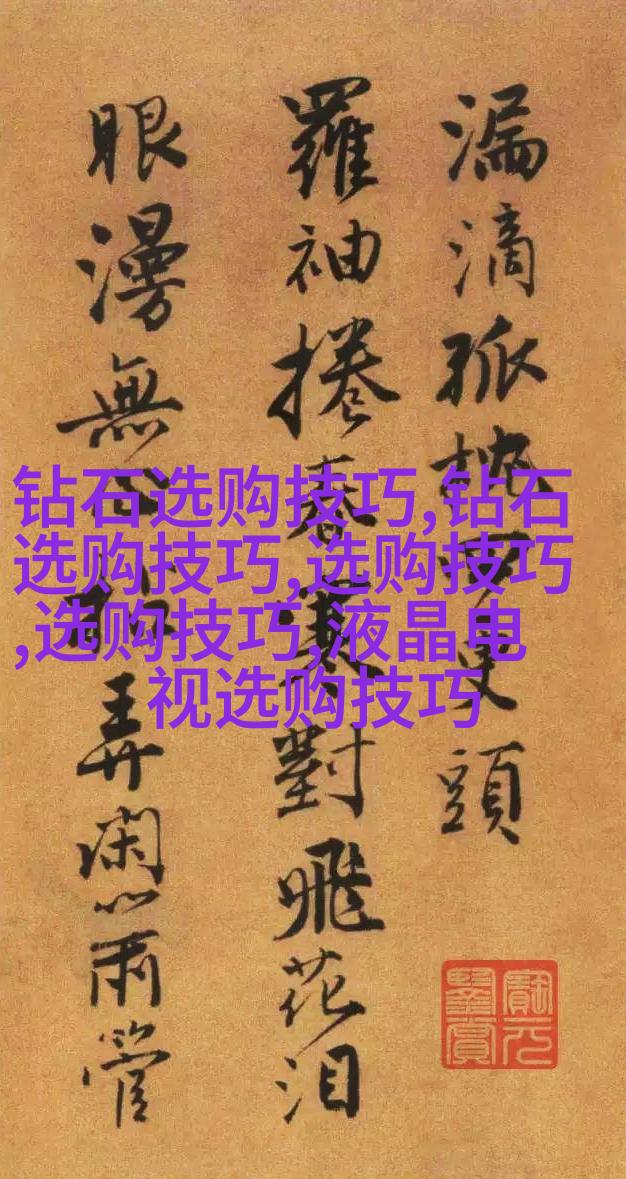 漏滴孤更頭
羅袖捲春寒對飛花泪
眼漫無弄閑心管
钻石选购技巧,钻石
选购技巧,选购技巧
,选购技巧,液晶电
视选购技巧